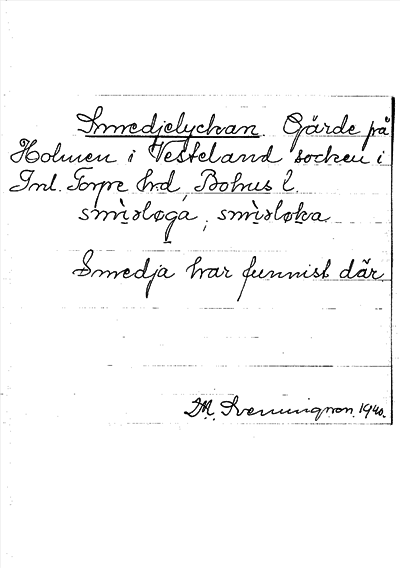 Smedjelyckan. Gärde på
Holmen i Vesterland socken i
Inl. Torpe hrd, Bohus l.
smìsløga, smìsløka
Smedja har funnist där
M. Svenningson. 1940.